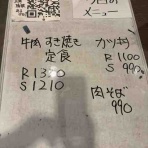 今日の
メニュー
牛肉 すき焼き
定食
R 1300
S 1210
カツ丼
R 1100
S 990
肉そば
990